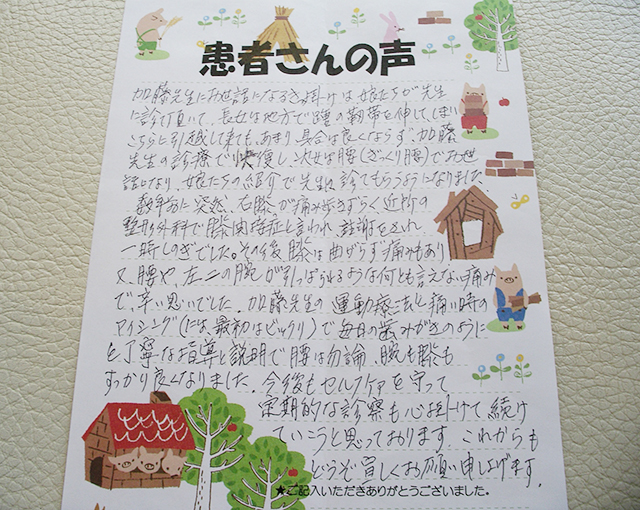 患者さんの声
加藤先生にお世話になるきっ掛けは、娘たちが先生
に診て頂いて、長女は地方で踵の靭帯を伸してしまい
こちらに引越して来ても、あまり具合は良くならず、加藤
先生の診療で快復し、次女は腰(ぎっくり腰)でお世
話になり、娘たちの紹介で先生に診てもらうようになりました。
数年前に突然、右膝が痛み歩きずらく近所の
整形外科で膝関節症と言われ、注射をされ
一時しのぎでした。その後膝は曲がらず痛みもあり
又、腰や、左二の腕が引っぱられるような何とも言えない痛み
で、辛い思いでした。加藤先生の運動療法と痛い時の
アイシング(には、最初はビックリ)で毎日の歯みがきのように
と丁寧なご指導と説明で腰は勿論、腕も膝も
すっかり良くなりました。今後もセルフケアを守って
定期的な診察も心を掛けて続け
ていこうと思っております。これからも
どうぞ宜しくお願い申し上げます。
★ご記入いただきありがとうございました。